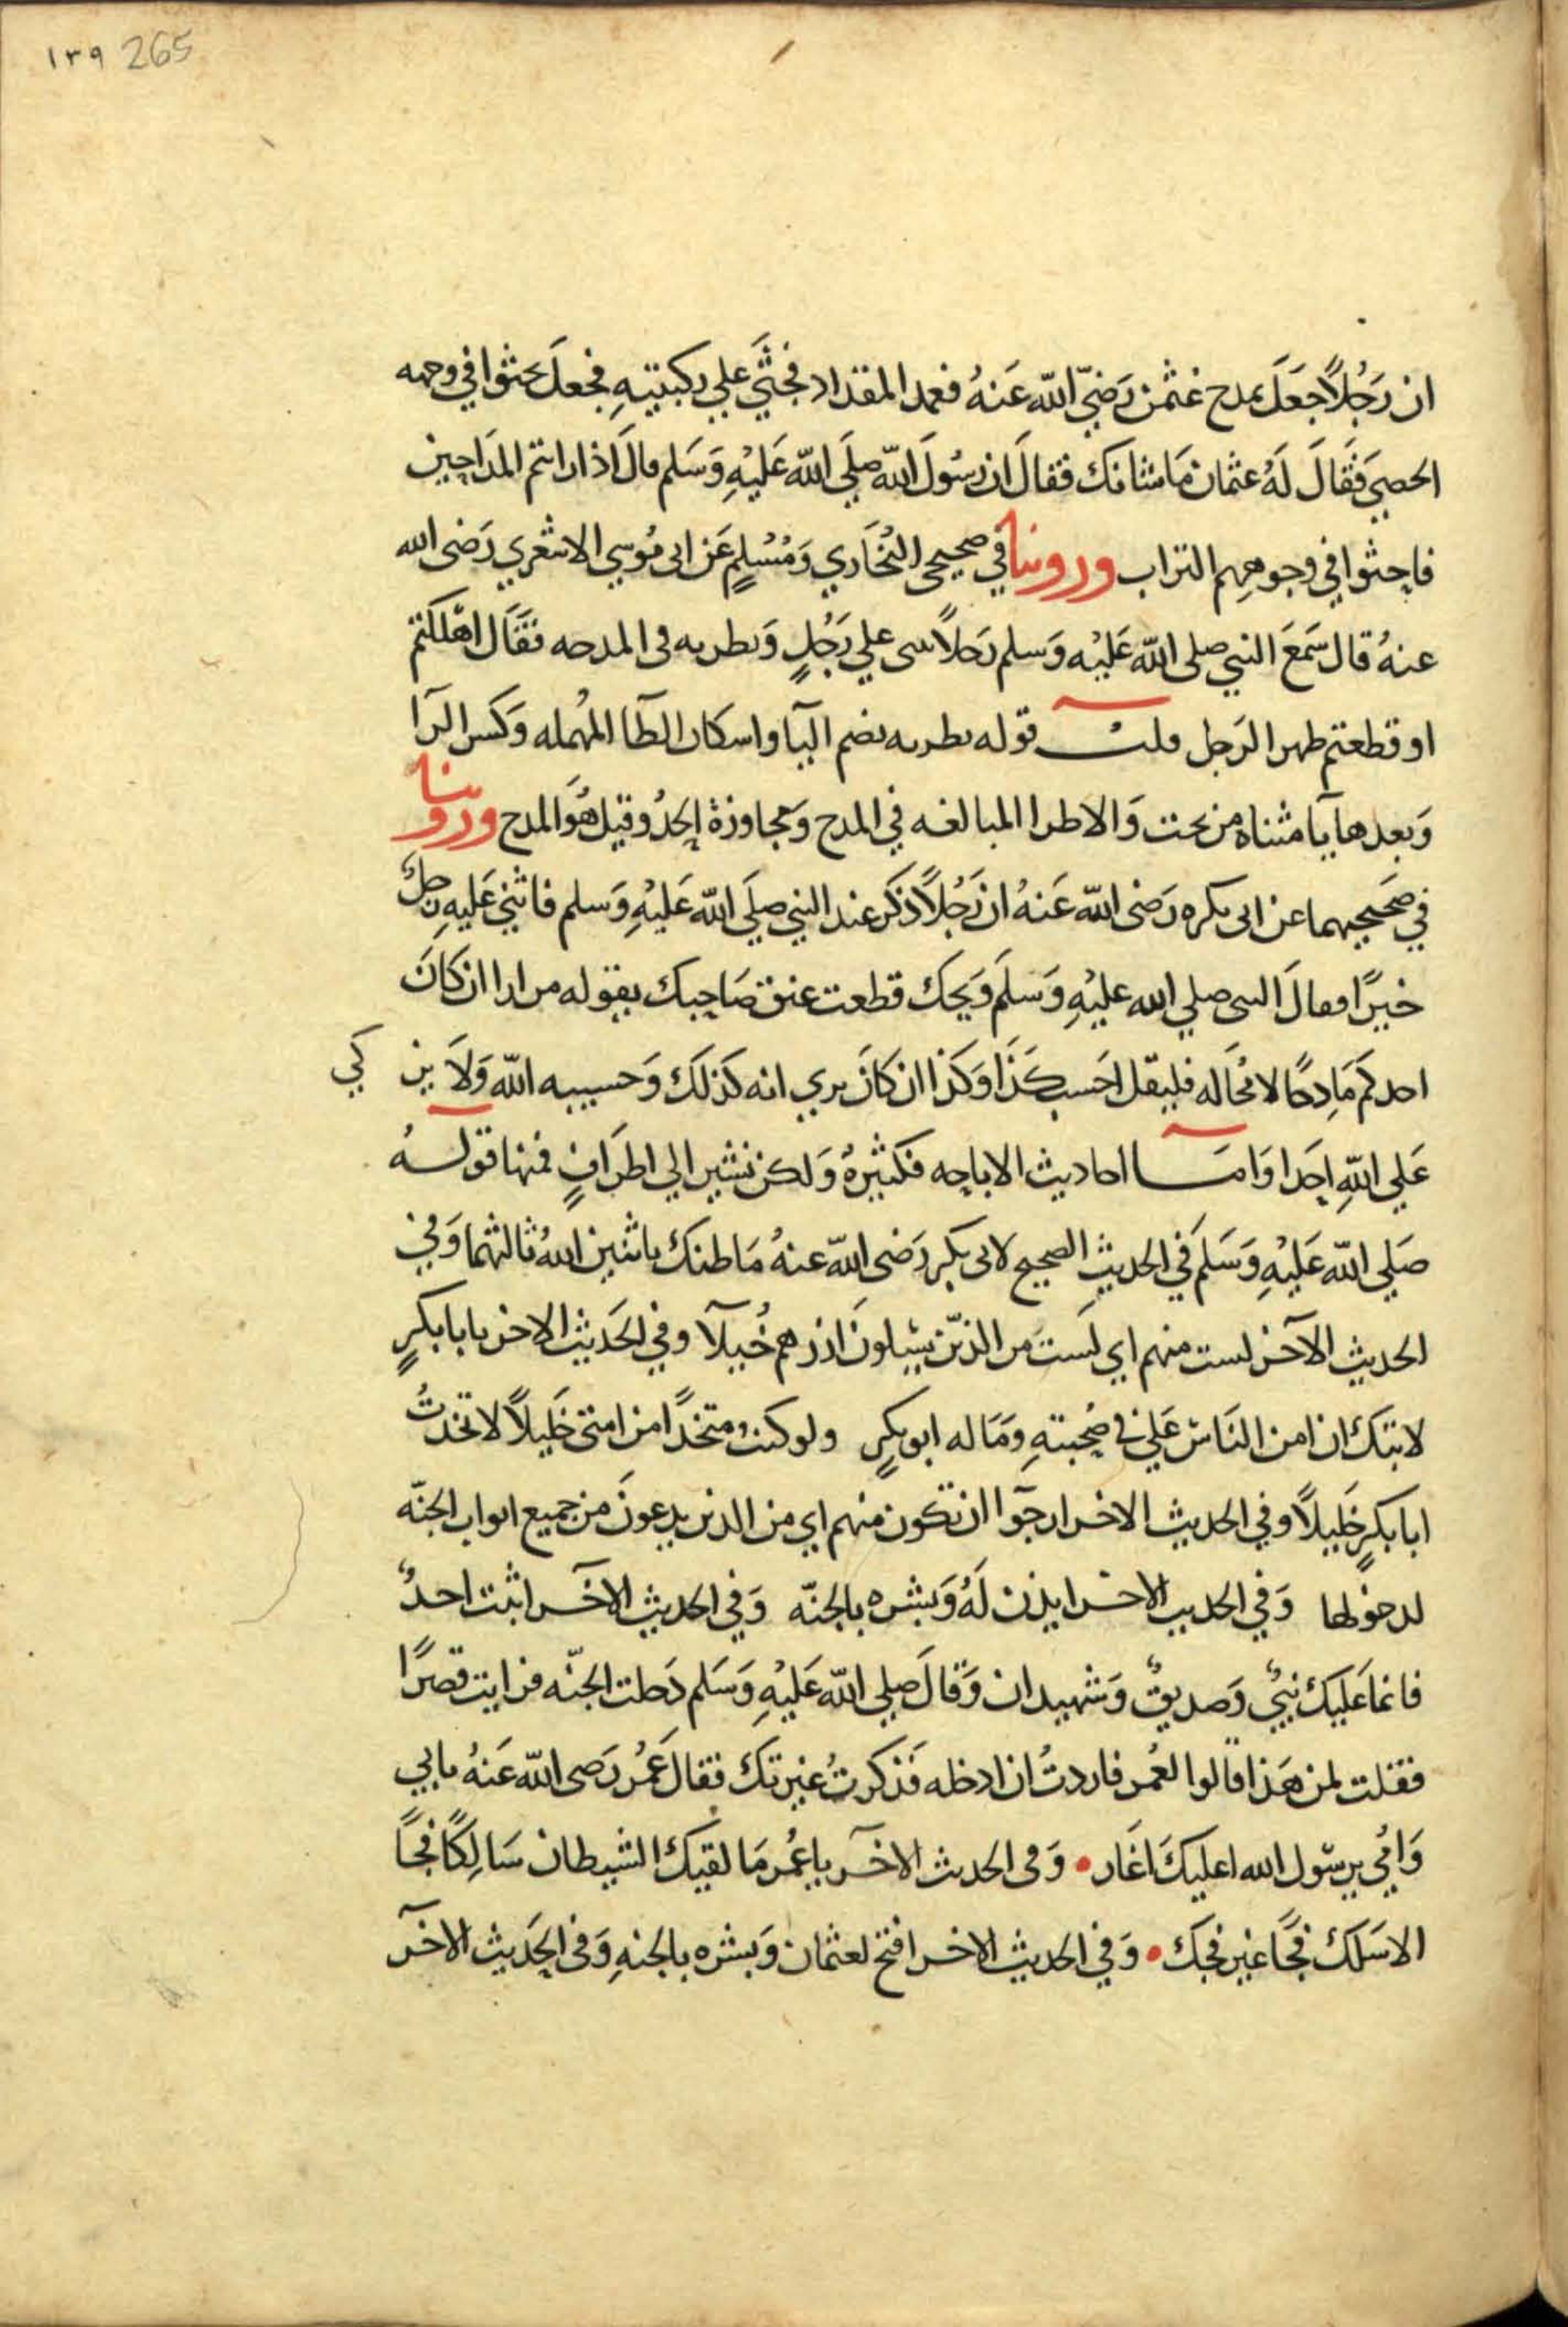 ١٣٩ 265
ان رَجُلاً جَعَلَ يمدح عثمن رَضيَ الله عَنهُ فعمد المقداد فجثَي علي ركبتيهِ فجعلَ يحثوا في وجهه
الحصيَ فَقَالَ لَهُ عثمان مَا شانك فقالَ ان رسُولَ الله صلَي الله عَليْهِ وَسَلم قالَ اذا رايتم المدَاحِين
فاحثوا في وجوههِم التراب وروينا في صحيحي البُخَاري وَمُسْلمٍ عَن ابى مُوسي الاشعري رَضى الله
عنهُ قال سَمَعَ النبي صلى الله عَليْه وَسلم رَجلاً يثني علي رَجُلٍ وَيطريه في المدحه فقَالَ اهْلكتم
او قطعتم ظهر الرَجل قلت قوله يطريه بضم اليآ واسكان الطآ المهُمله وَكسر الرآ
وَبعدها يآ مثناه من تحت وَالاطرا المبالغه في المدح وَمجاوزة الحدُ وقيل هُوَ المدح وروينا
في صَحيحيهما عن ابى بكره رَضى الله عَنهُ ان رَجُلاً ذكَر عند النبي صلَي الله عَليْهِ وَسلم فاثني عَليهِ رجلٌ
خيرًا فقالَ النبى صلي الله عليْهِ وَسَلَم وَيحَك قطعت عنق صَاحِبك يقوله مرارا ان كَانَ
احدكم مَادِحًا لا مُحَاله فليقل احَسب كذَا وَكذا ان كانَ يري انه كذلكَ وَحسيبه الله وَلاَ يز كي
عَلي اللهِ احَدا وَامَا احاديث الاباحِه فكثيرهُ وَلكن نشير الي اطرَافٍ فمنها قولهُ
صَلي الله عَليْهِ وَسَلمَ في الحديثِ الصحيح لابى بكر رَضى الله عنهُ مَا ظنك باثنين اللهُ ثالثهما وَفي
الحديث الآخر لست منهم اي لَستَ من الذيّن يسْبلونَ ازرهم خُيلآ وفي الحَديث الاخر يابا بكرٍ
لا تبك ان امن النَاس عَلي في صُحبتهِ وَمَا له ابو بكرٍ ولو كنت متخذًا من امتى خَليلاً لاتخذتُ
ابا بكرٍ خَليلاً وفي الحديث الاخر ارجوآ ان تكون منهم اي من الذين يدعونَ من جميع ابواب الجنّه
لدخولها وَفي الحديث الاخر ايذن لَهُ وَبشره بالجنّه وَفي الحديث الآخر اثبت احدٌ
فانما عَليكَ نبيٌ وَصديقٌ وَشهيدان وَقالَ صلي الله عَليْهِ وَسَلم دَخلت الجنّه فرايت قصرًا
فقلت لمن هَذا قالوا لعُمر فاردتُ ان ادخله فَذكرتُ غيرتك فقالَ عَمُر رَضى الله عَنهُ بابي
وَامُي يرسُول الله اعليكَ اغَار • وَفى الحديث الاخر ياعُمر مَا لقيَك الشيطان سَالِكًا فجًا
الا سَلك فجَا غير فجك • وَفي الحديث الاخر افتح لعثمان وَبشره بالجنهِ وَفى الحَديث الاخر